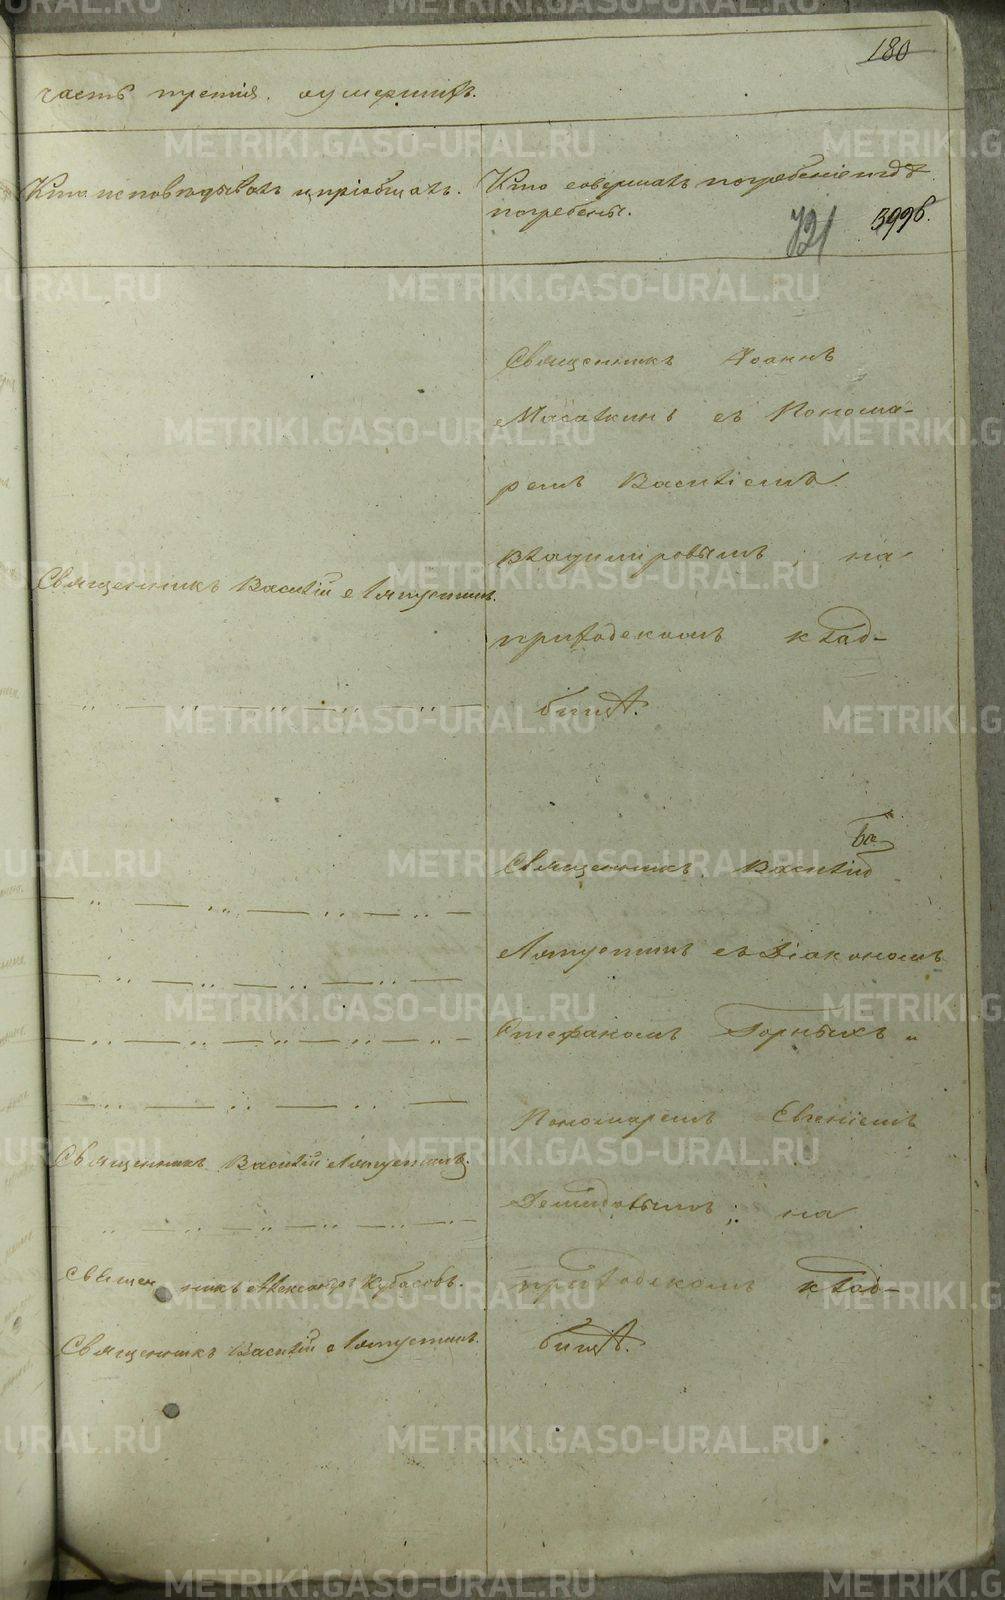 180
часть третія. о умершихъ.
Кто исповѣдывалъ и пріобщалъ.
Кто совершалъ погребеніе и гдѣ
погребены.
721 399б.
Священникъ Іоаннъ
съ Понома-
ремъ Василіемъ
Владиміровымъ, на
приходскомъ клад-
бищѣ.
Священникъ Василій Ляпустинъ.
Священникъ Василій
Ляпустинъ съ Діакономъ
Стефаномъ Горныхъ и
Пономаремъ Евгеніемъ
Демидовымъ; на
приходскомъ клад-
бищѣ.
Священникъ Василій Ляпустинъ.
Священникъ Александръ Кубасовъ.
Священникъ Василій Ляпустинъ.
METRIKI.GASO-URAL.RU